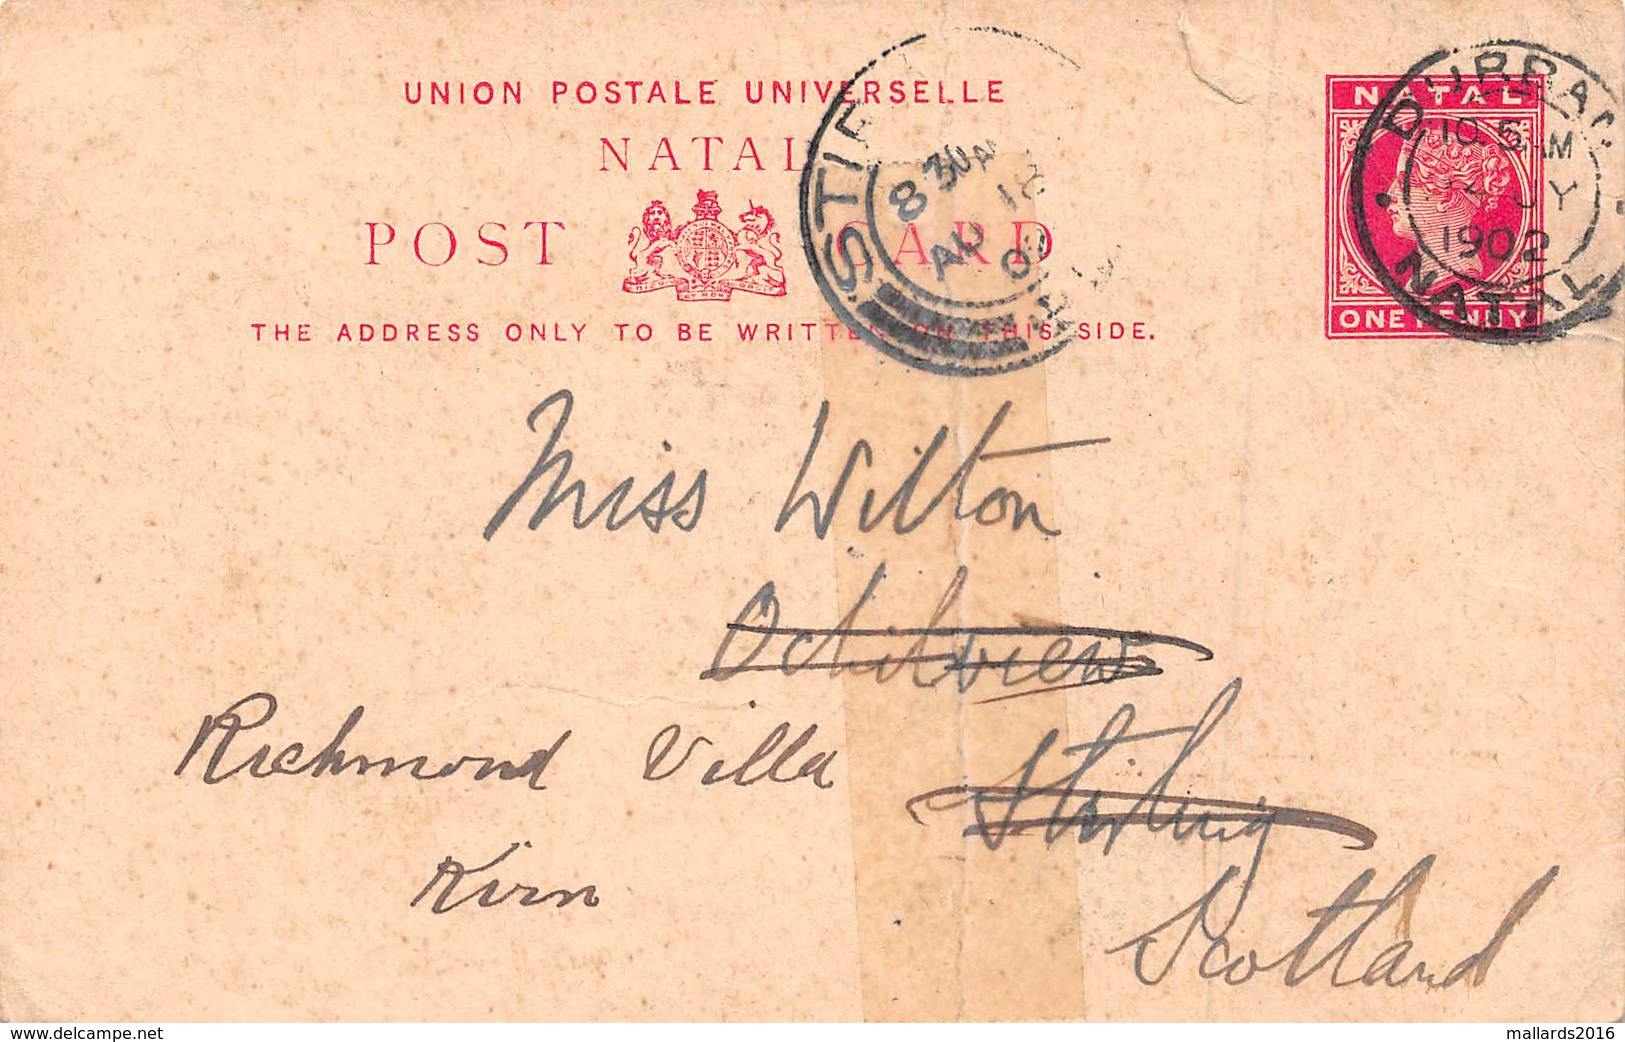 UNION POSTALE UNIVERSELLE
NATAL
POST CARD
THE ADDRESS ONLY TO BE WRITTEN ON THIS SIDE.
NATAL
ONE PENNY
DURBAN
10.5 AM
JY
1902
NATAL
STIR
8 30 AM
AU 18
02
Miss Wilton
Ochilview
Stirling
Scotland
Richmond Villa
Kirn
www.delcampe.net
mallards2016